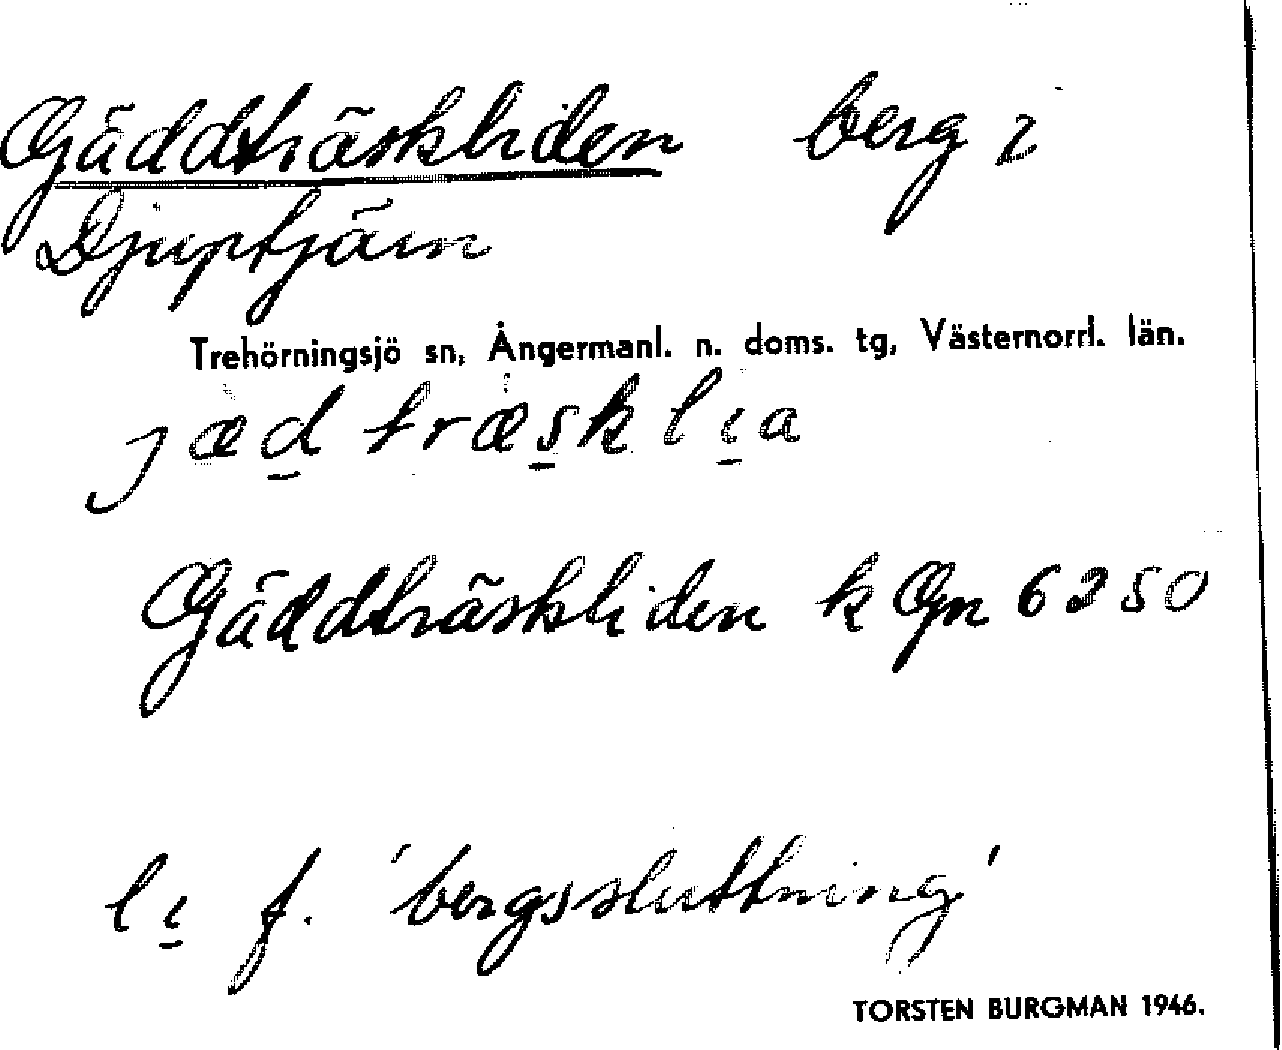 Gäddträskliden berg i
Djuptjärn
Trehörningsjö sn, Ångermanl. n. doms. tg, Västernorrl. län.
jæd̲ træs̲klı̲a
Gäddträskliden k Gn 6250
lı̲ f. 'bergssluttning'
TORSTEN BURGMAN 1946.